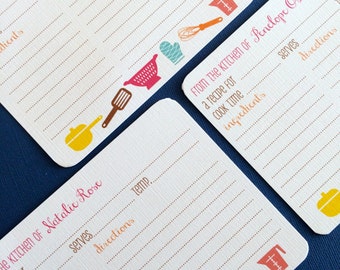 ingredients
From the kitchen of Penelope
a recipe for
serves
cook time
ingredients
directions
the kitchen of Natalie Rose
serves
temp.
directions